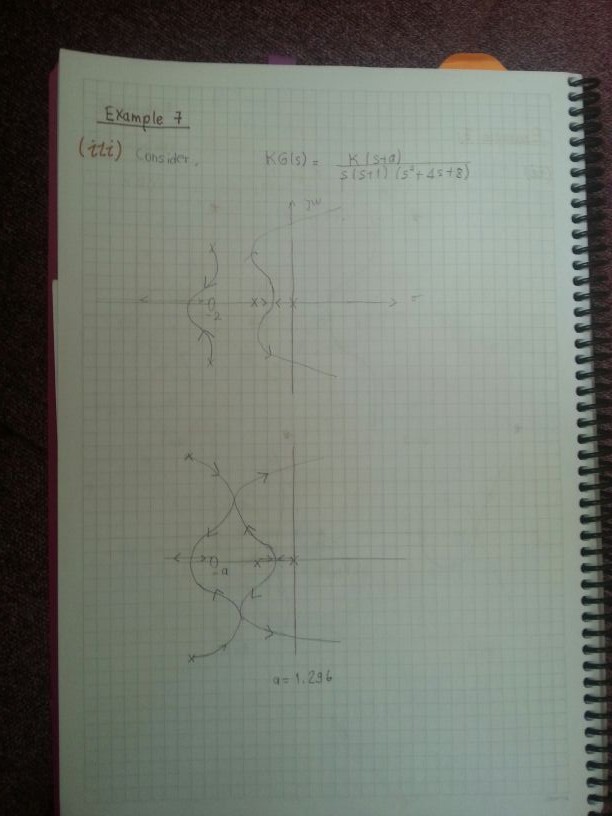 Example 7
(iii) Consider, KG(s) = K(s+a)
s(s+1)(s²+4s+8)
jw
σ
-2
-a
a=1.296